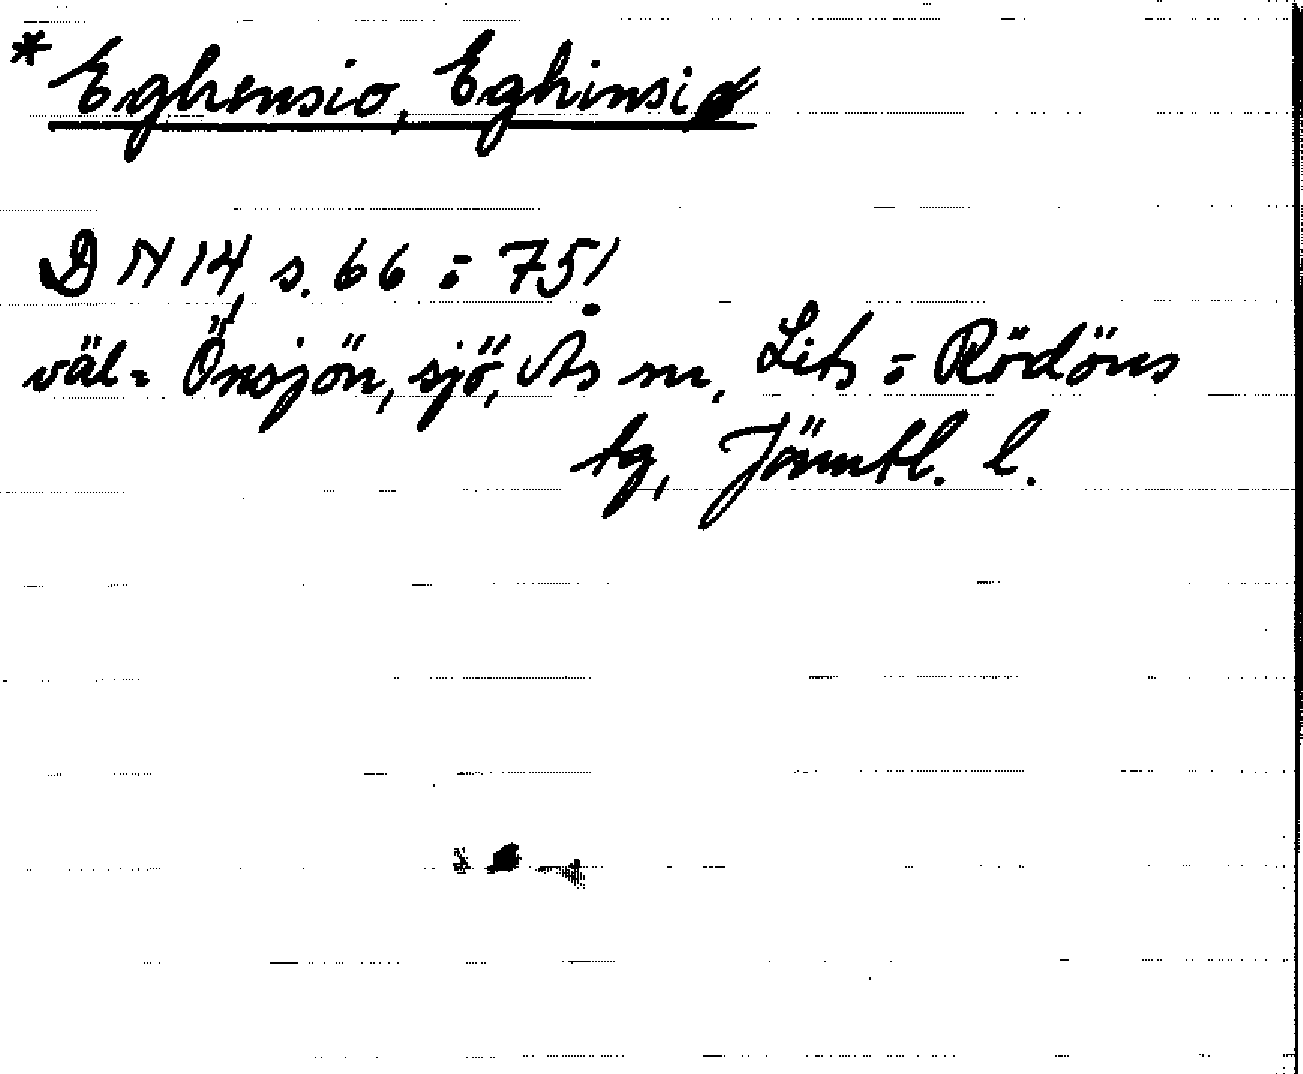 * Eghensio, Eghinsiø
DN 14 s. 66 o 75!
väl = Önsjön, sjö, Ås sn, Lits o Rödöns
tg, Jämtl. l.